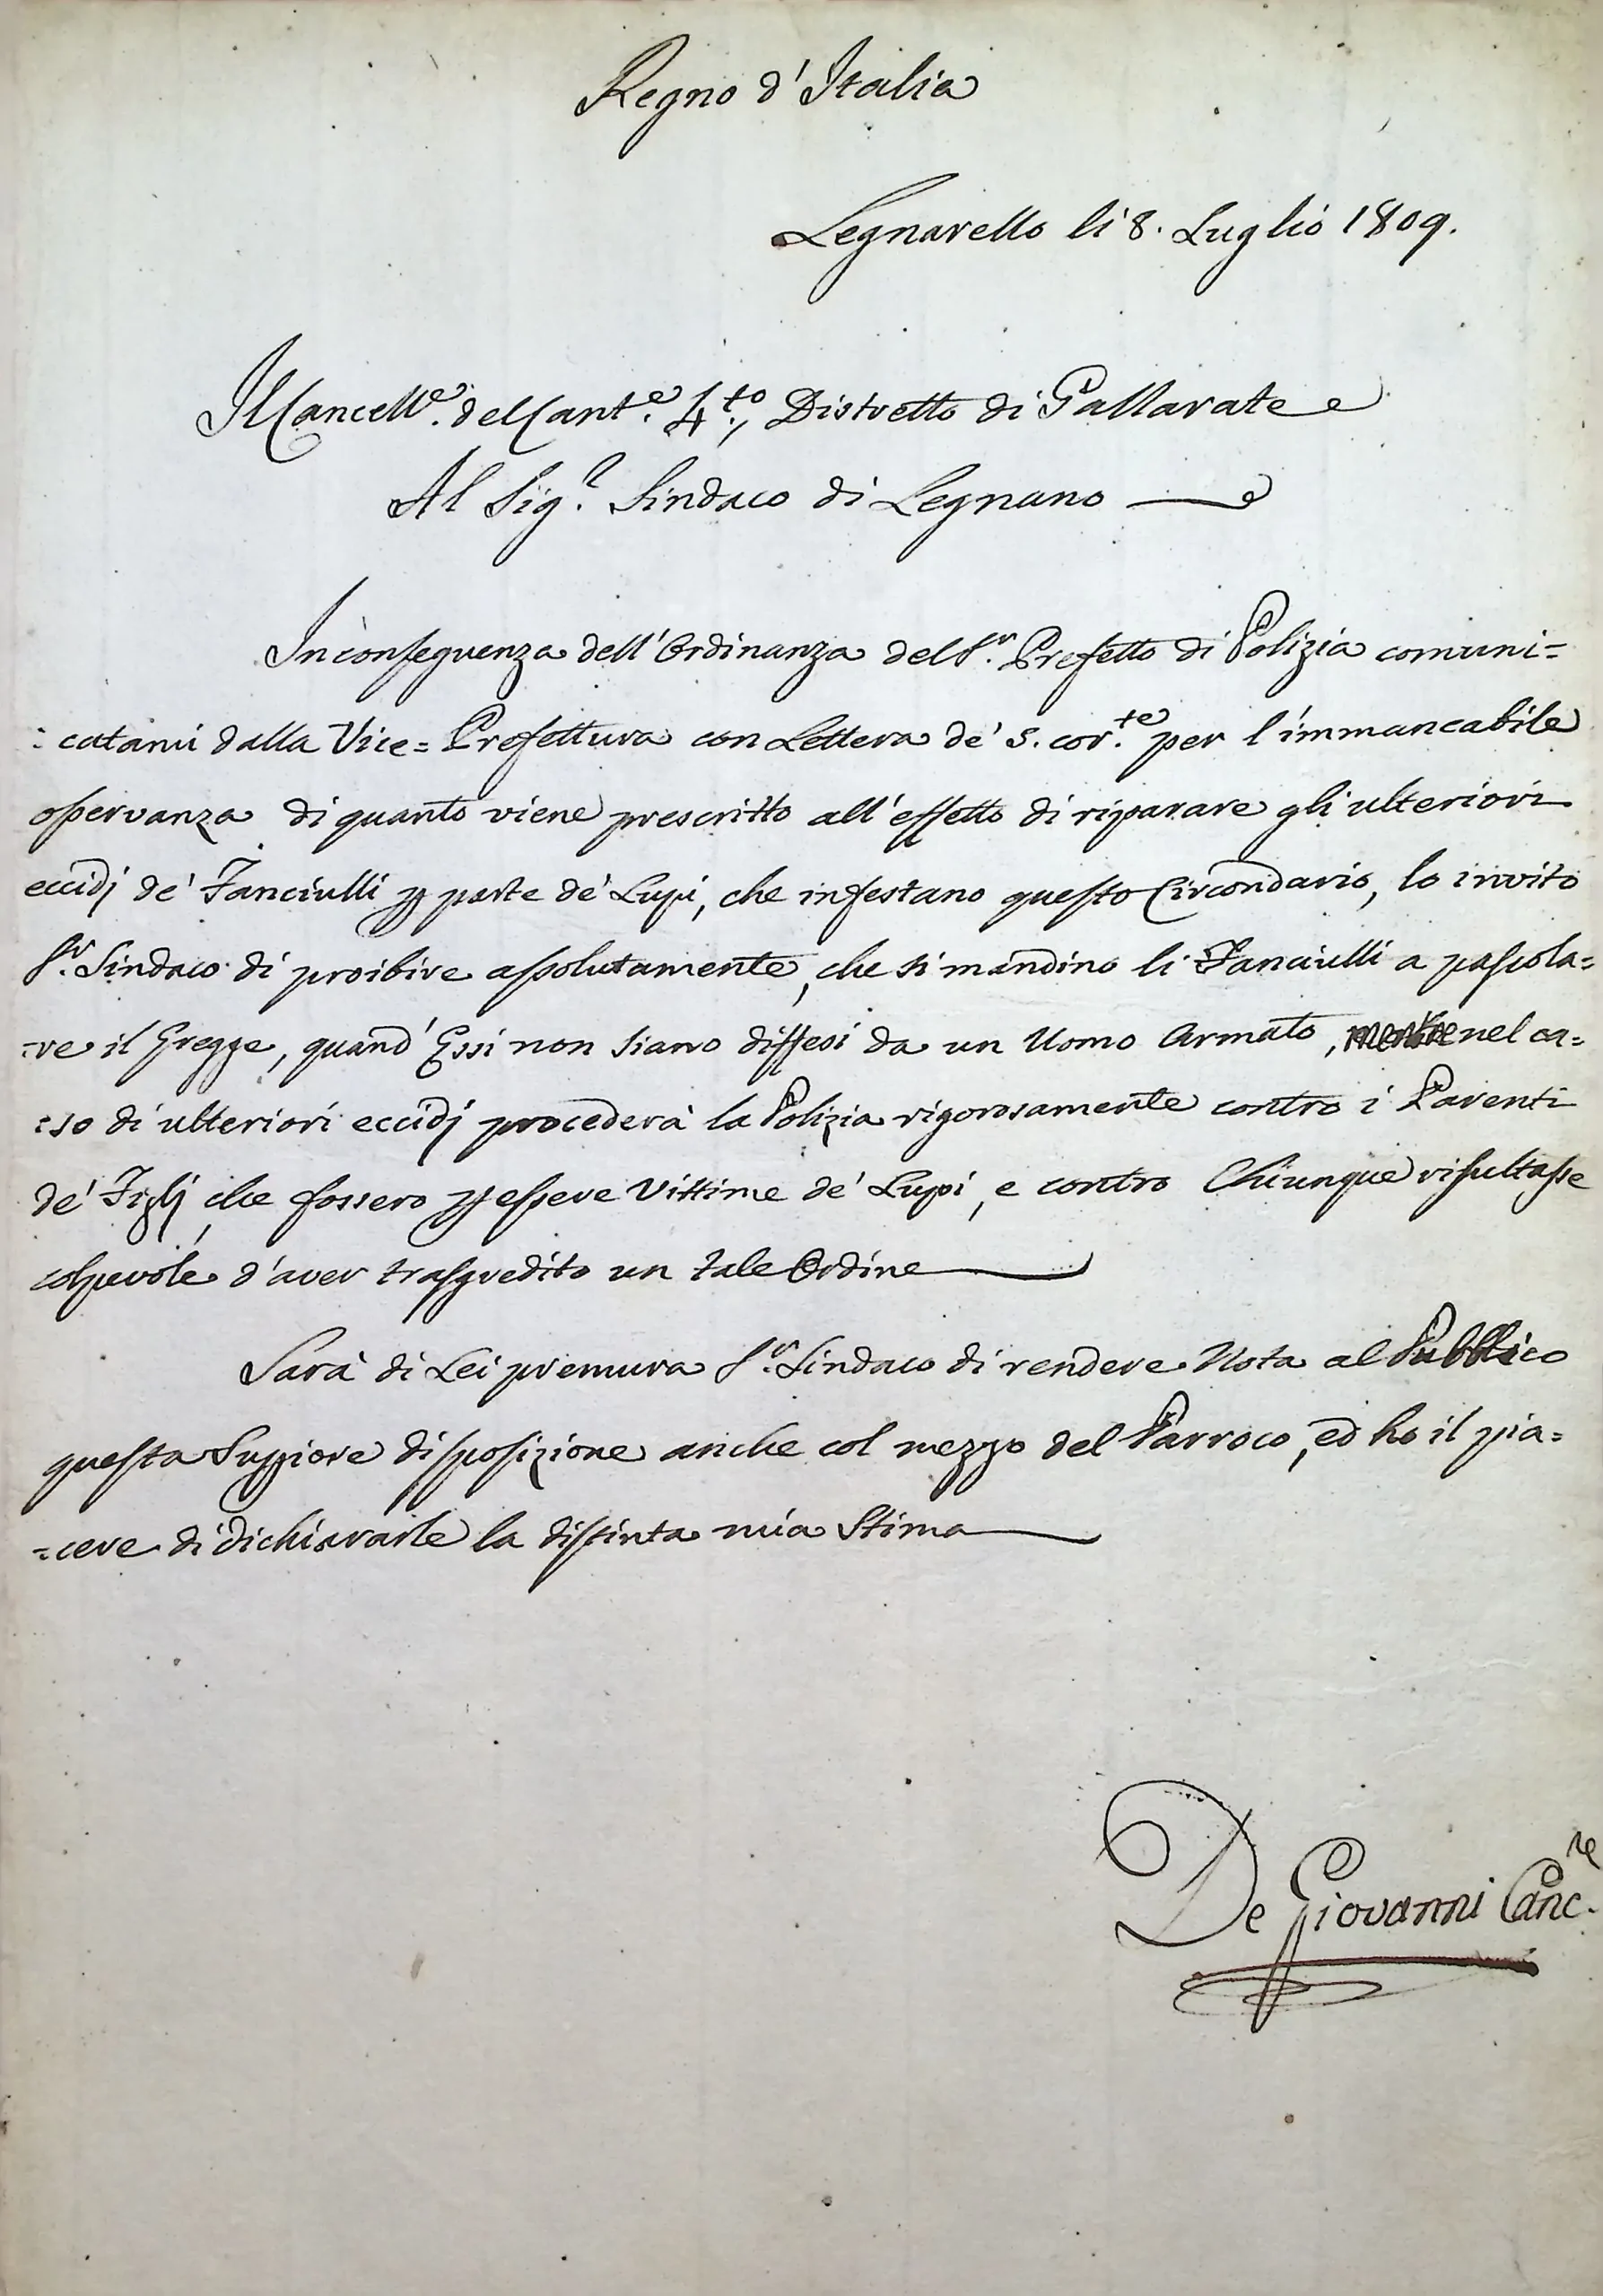 Regno d'Italia
Legnarello li 8. Luglio 1809.
Il Cancell.e del Cant.e 4.to, Distretto di Gallarate
Al Sig.r Sindaco di Legnano
In conseguenza dell'Ordinanza del S.r Prefetto di Polizia comuni=
=catami dalla Vice=Prefettura con Lettera de' 5. cor.te per l'immancabile
osservanza di quanto viene prescritto all'effetto di riparare gli ulteriori
eccidj de' Fanciulli p parte de' Lupi, che infestano questo Circondario, lo invito
S.r Sindaco di proibire assolutamente, che si mandino li Fanciulli a pascola=
=re il Gregge, quand' Essi non siano diffesi da un Uomo Armato, mentre nel ca=
=so di ulteriori eccidj procederà la Polizia rigorosamente contro i Parenti
de' Figlj, che fossero p essere Vittime de' Lupi, e contro Chiunque risultasse
colpevole d'aver trasgredito un tale Ordine
Sarà di Lei premura S.r Sindaco di rendere Nota al Pubblico
questa Suppiore disposizione anche col mezzo del Parroco, ed ho il pia=
=cere di dichiararle la distinta mia Stima
De Giovanni Canc.re